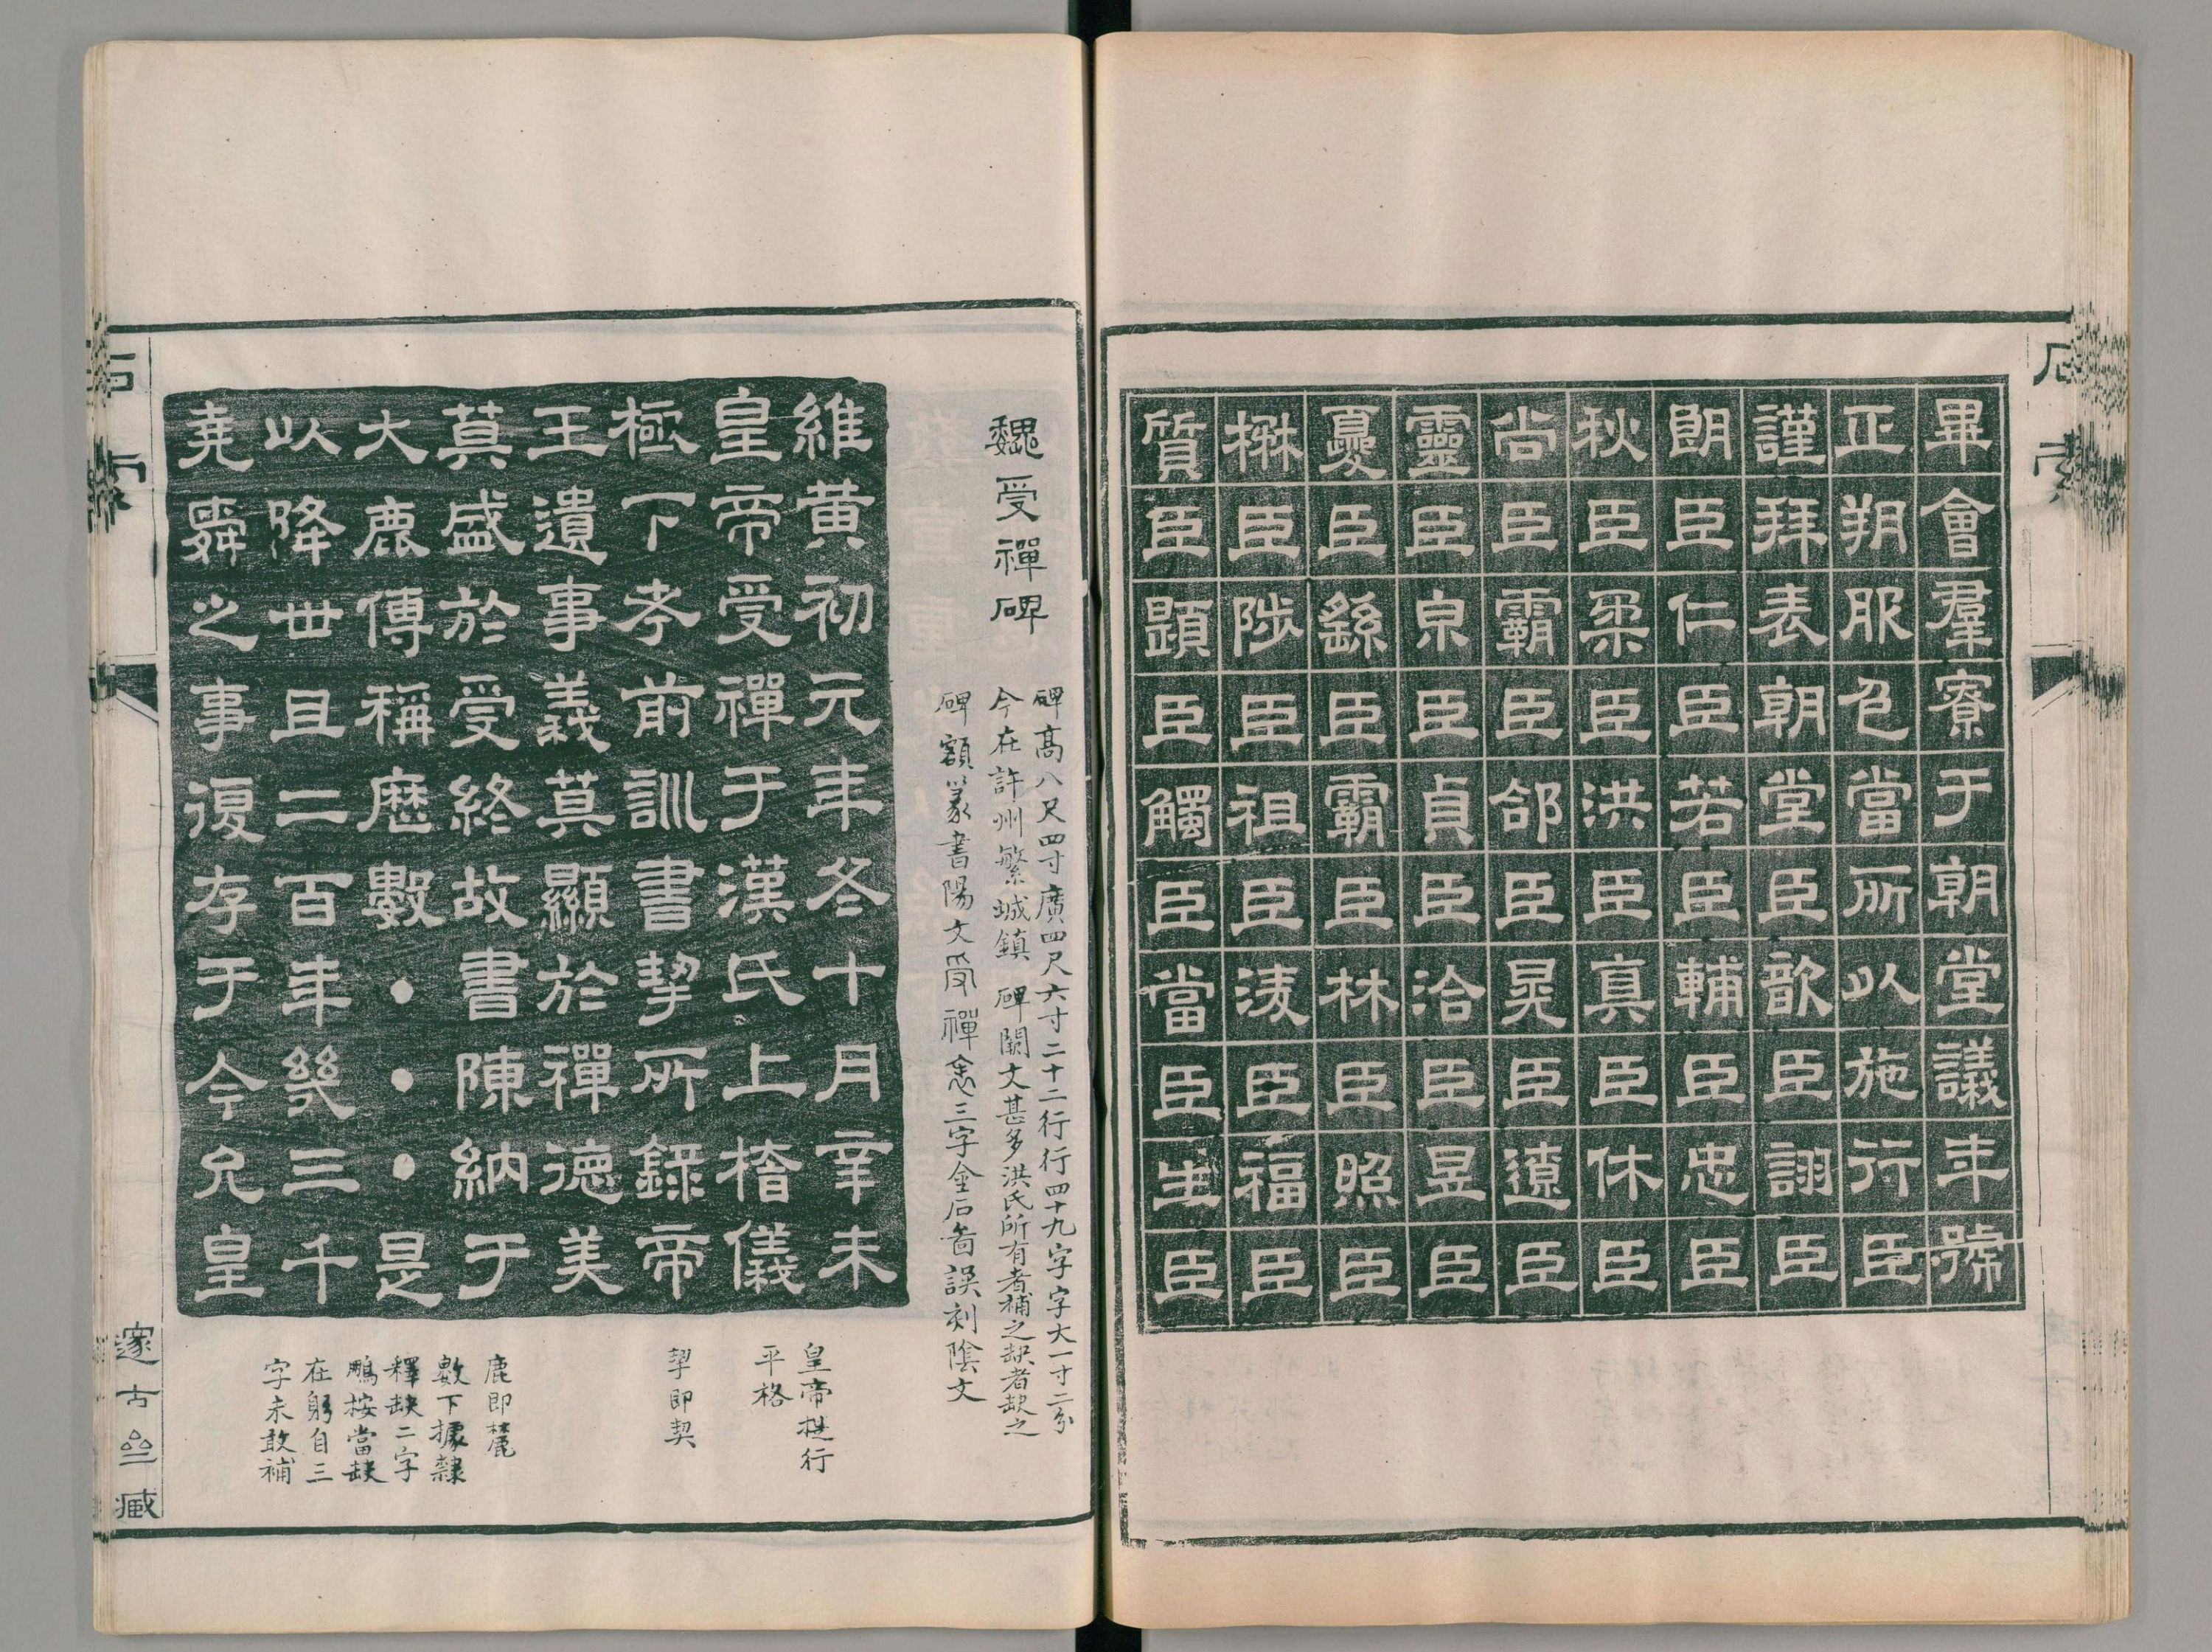 畢會羣寮于朝堂議年號
正朔服色當所以施行臣
謹拜表朝堂臣歆臣詡臣
朗臣仁臣若臣輔臣忠臣
秋臣柔臣洪臣真臣休臣
尚臣霸臣郃臣晃臣遼臣
靈臣泉臣貞臣洽臣昱臣
憂臣繇臣霸臣林臣照臣
楙臣陟臣祖臣淩臣福臣
質臣題臣觸臣當臣生臣
魏受禪碑
碑高八尺四寸廣四尺六寸二十二行行四十九字字大一寸二分
今在許州繁城鎮碑闕文甚多洪氏所有者補之缺者缺之
碑額篆書陽文受禪表三字金石啚誤刻陰文
維黄初元年冬十月辛未
皇帝受禪于漢氏上稽儀
極下孝前訓書挈所録帝
王遺事義莫顯於禪德美
莫盛於受終故書陳納于
大鹿傳稱歷數・・・是
以降世且二百年幾三千
堯舜之事復存于今允皇
皇帝提行
平格
挈即契
鹿即麓
數下據隸
釋缺二字
鵬按當缺
在躬自三
字未敢補
石索
邃古亝藏